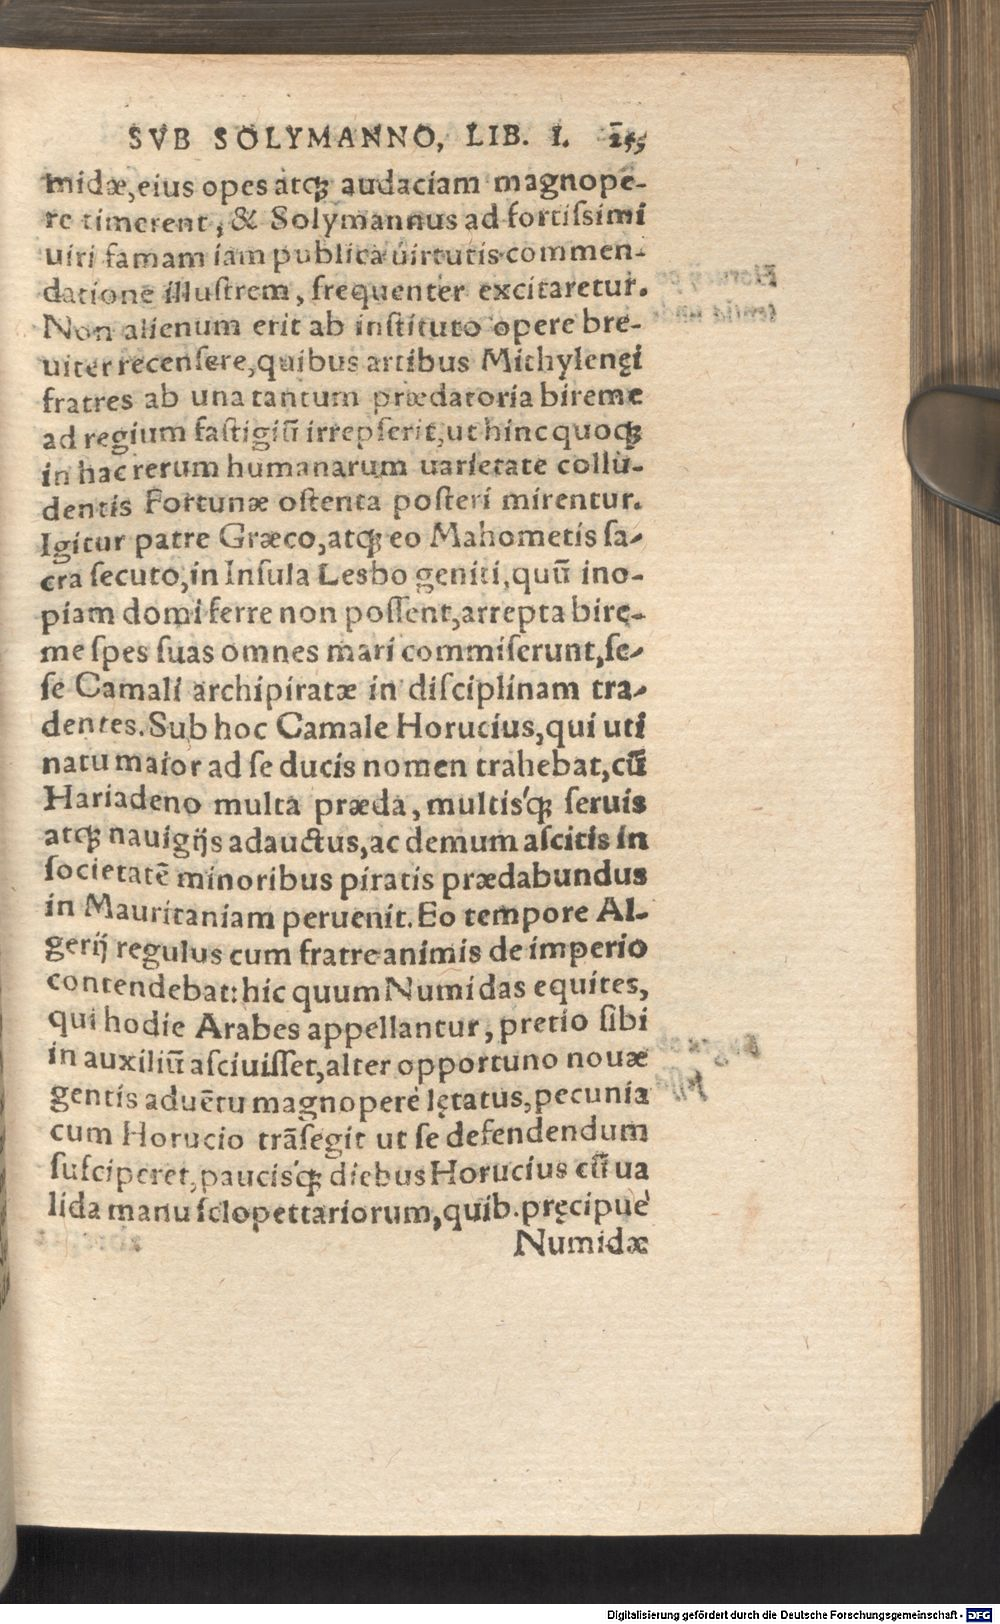 SVB SOLYMANNO, LIB. I. 255
midæ, eius opes atqꝫ audaciam magnope-
re timerent, & Solymannus ad fortissimi
uiri famam iam publica uirtutis commen-
datione illustrem, frequenter excitaretur.
Non alienum erit ab instituto opere bre-
uiter recensere, quibus artibus Mithylenęi
fratres ab una tantum prædatoria bireme
ad regium fastigiū irrepserit, ut hinc quoqꝫ
in hac rerum humanarum uarietate collu-
dentis Fortunæ ostenta posteri mirentur.
Igitur patre Græco, atqꝫ eo Mahometis sa-
cra secuto, in Insula Lesbo geniti, quū ino-
piam domi ferre non possent, arrepta birę-
me spes suas omnes mari commiserunt, se-
se Camali archipiratæ in disciplinam tra-
dentes. Sub hoc Camale Horucius, qui uti
natu maior ad se ducis nomen trahebat, cū
Hariadeno multa præda, multis'qꝫ seruis
atqꝫ nauigijs adauctus, ac demum ascitis in
societatē minoribus piratis prædabundus
in Mauritaniam peruenit. Eo tempore Al-
gerij regulus cum fratre animis de imperio
contendebat: hic quum Numidas equites,
qui hodie Arabes appellantur, pretio sibi
in auxiliū asciuisset, alter opportuno nouæ
gentis aduētu magnoperè lętatus, pecunia
cum Horucio trāsegit ut se defendendum
susciperet, paucis'qꝫ diebus Horucius cū ua
lida manu sclopettariorum, quib. pręcipuè
Numidæ
Digitalisierung gefördert durch die Deutsche Forschungsgemeinschaft - DFG